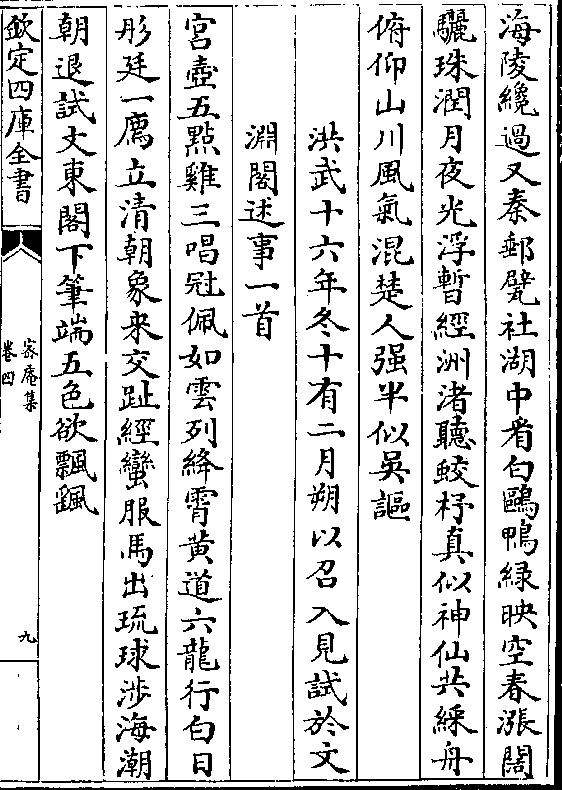 海陵纔過又秦郵甓社湖中看白鷗鴨緑映空春漲闊
驪珠潤月夜光浮暫經洲渚聽鮫杼真似神仙共綵舟
俯仰山川風氣混楚人强半似吳謳
洪武十六年冬十有二月朔以召入見試於文
淵閣述事一首
宮壺五點雞三唱冠佩如雲列絳霄黄道六龍行白日
彤廷一廌立清朝象來交趾經蠻服馬出琉球涉海潮
朝退試文東閣下筆端五色欲飄颻
欽定四庫全書
密庵集
卷四
九